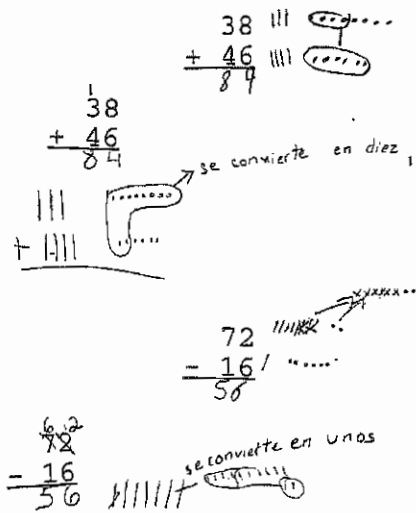 38
+ 46
84
1
38
+ 46
84
se convierte en diez
+
72
- 16
56
6 12
72
- 16
56
se convierte en unos